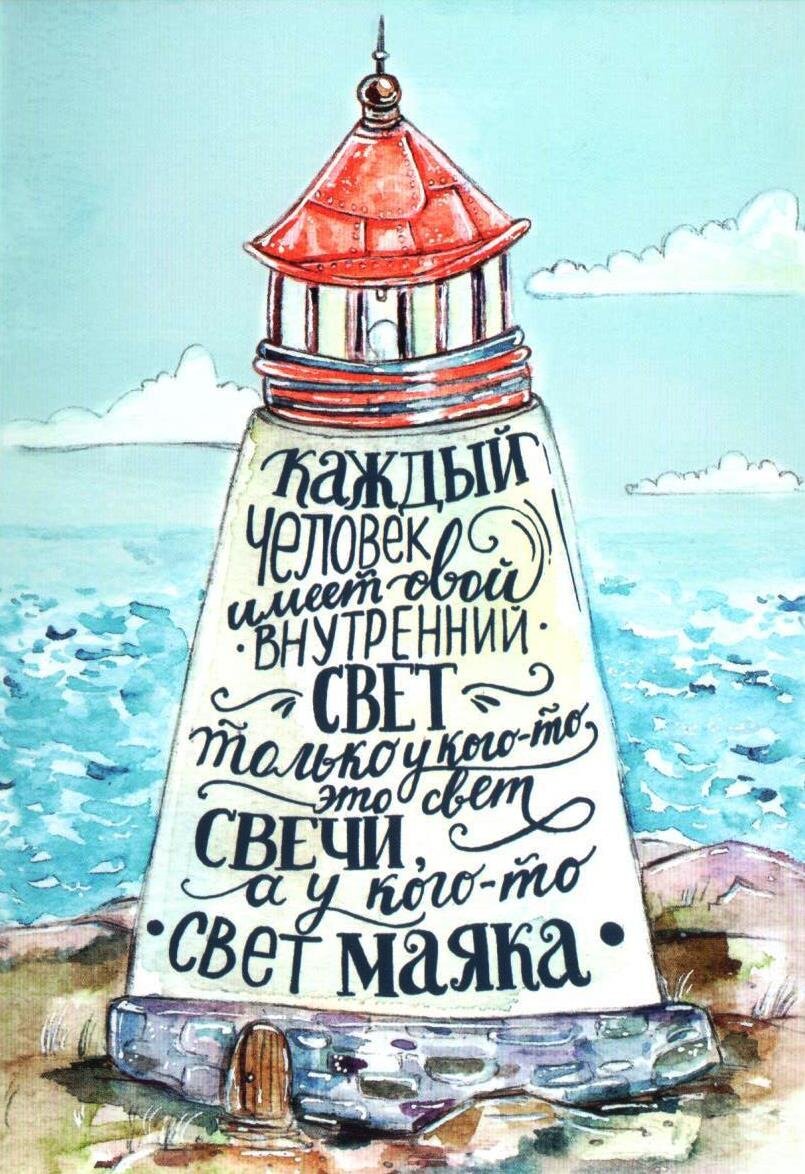 каждый
человек
имеет свой
• ВНУТРЕННИЙ •
СВЕТ
только у кого-то
это свет
СВЕЧИ,
а у кого-то
• СВЕТ МАЯКА •